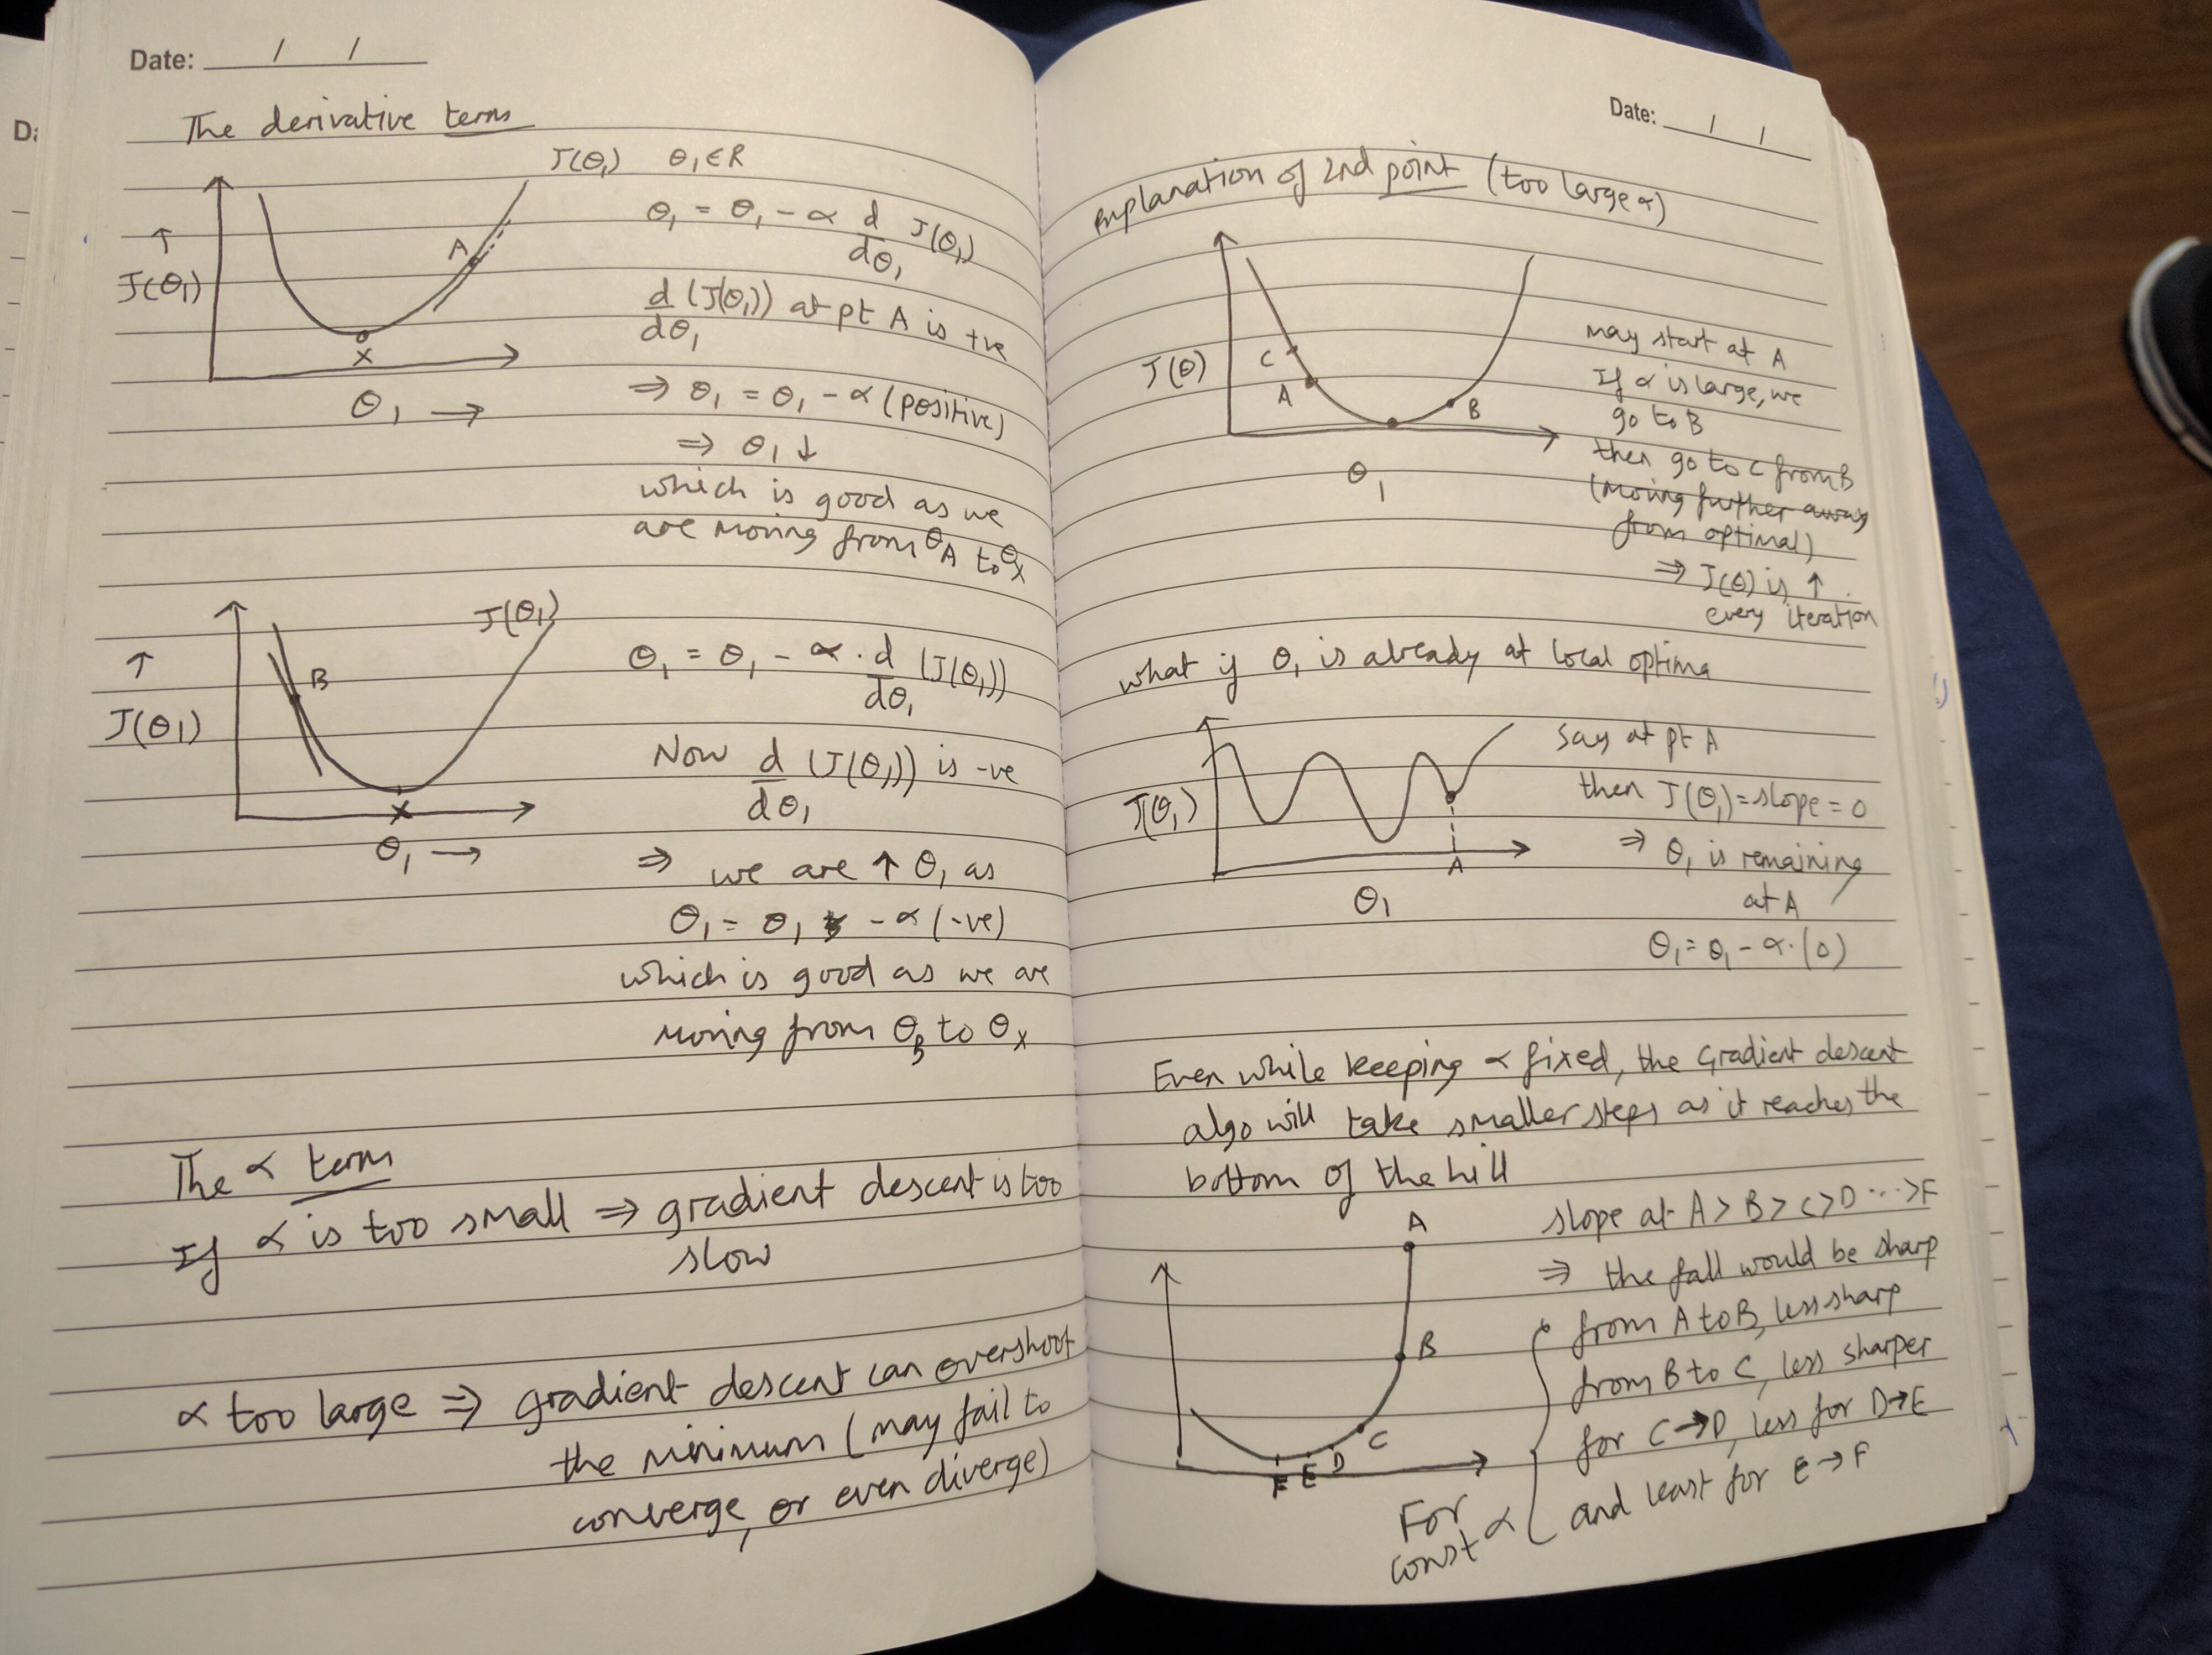 Date: / /
The derivative term
J(θ₁) θ₁ ∈ R
↑
J(θ₁)
A
X
θ₁ →
θ₁ = θ₁ - α d/dθ₁ J(θ₁)
d/dθ₁ (J(θ₁)) at pt A is +ve
⇒ θ₁ = θ₁ - α (positive)
⇒ θ₁ ↓
which is good as we
are moving from θA to θX
J(θ₁)
↑
J(θ₁)
B
X
θ₁ →
θ₁ = θ₁ - α . d/dθ₁ (J(θ₁))
Now d/dθ₁ (J(θ₁)) is -ve
⇒ we are ↑ θ₁ as
θ₁ = θ₁ - α (-ve)
which is good as we are
moving from θB to θX
The α term
If α is too small ⇒ gradient descent is too
slow
α too large ⇒ gradient descent can overshoot
the minimum (may fail to
converge, or even diverge)
Date: / /
explanation of 2nd point (too large α)
J(θ)
C
A
B
θ₁
may start at A
If α is large, we
go to B
then go to C from B
(moving further away
from optimal)
⇒ J(θ) is ↑
every iteration
what if θ₁ is already at local optima
J(θ₁)
A
θ₁
say at pt A
then J(θ₁) = slope = 0
⇒ θ₁ is remaining
at A
θ₁ = θ₁ - α.(0)
Even while keeping α fixed, the Gradient descent
algo will take smaller steps as it reaches the
bottom of the hill
A
B
C
D
E
F
slope at A > B > C > D ... > F
⇒ the fall would be sharp
from A to B, less sharp
from B to C, less sharper
for C → D, less for D → E
and least for E → F
For
const α